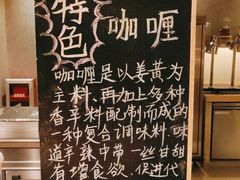 特色
咖喱
咖喱是以姜黄为
主料、再加上多种
香辛料配制而成的
一种复合调味料.味
道辛辣中带一丝甘甜
有增食欲、促进代